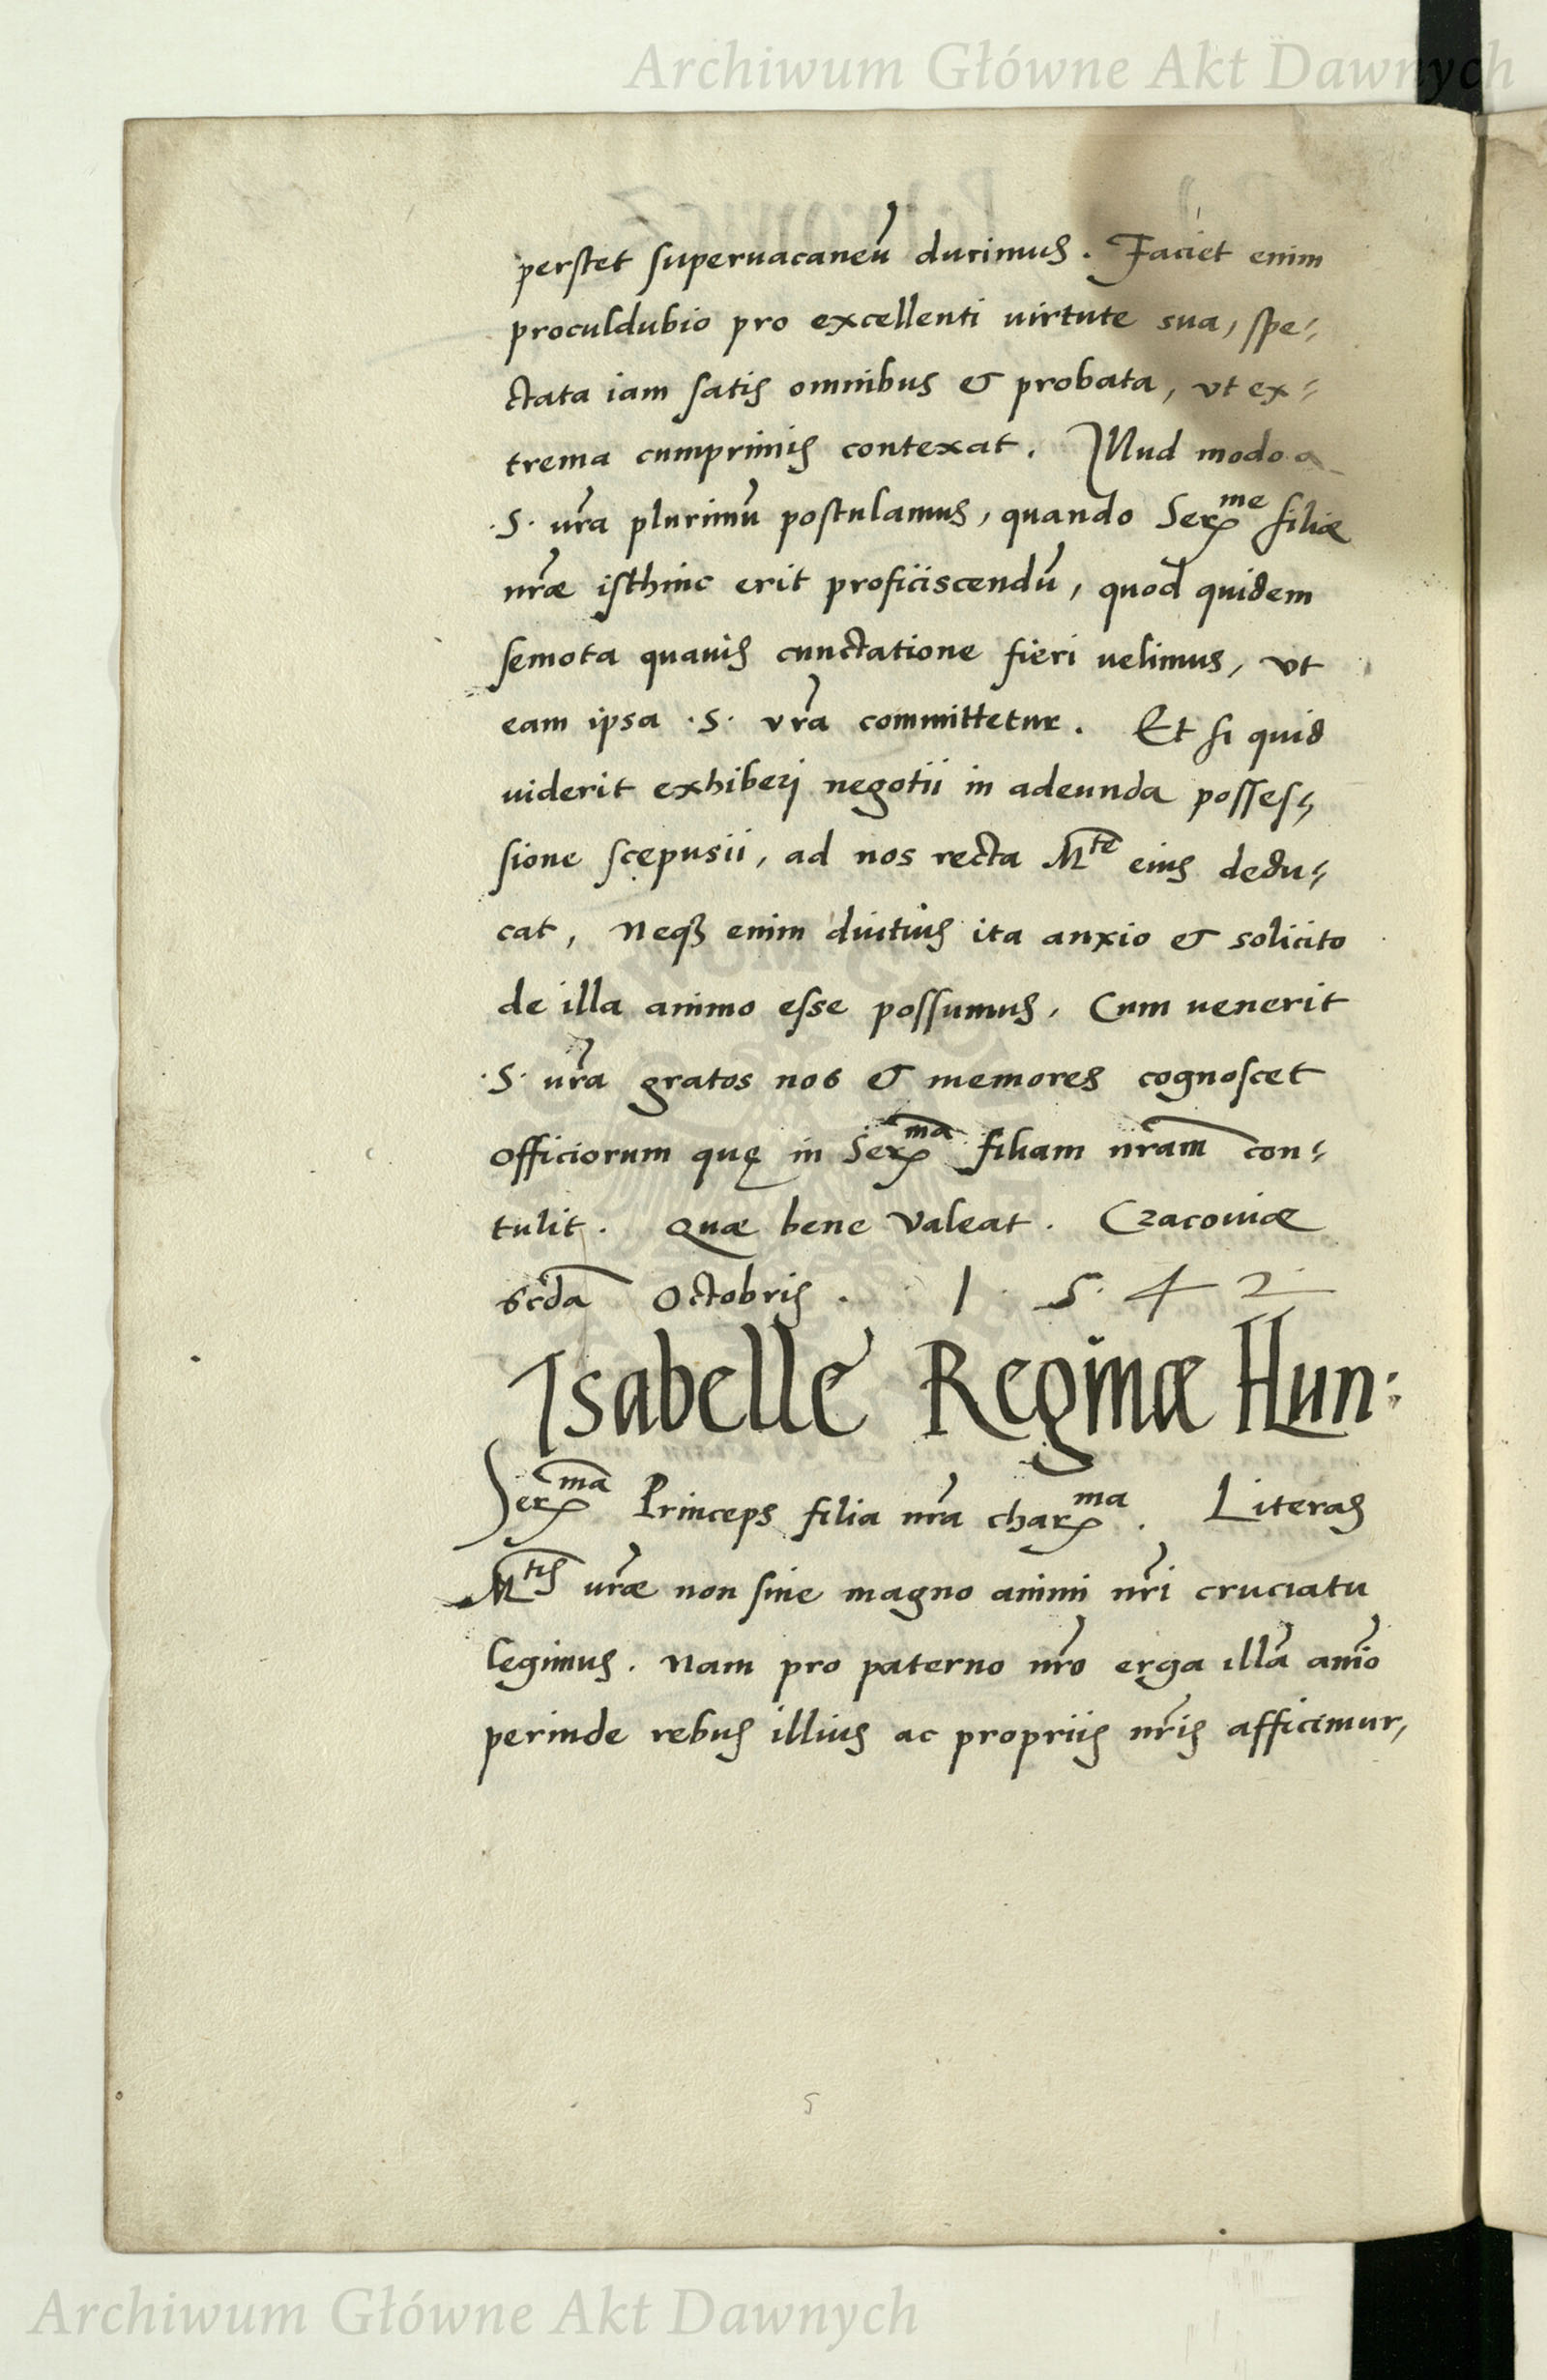 Archiwum Główne Akt Dawnych
perstet superuacaneū ducimus. Faciet enim
proculdubio pro excellenti uirtute sua, spe-
ctata iam satis omnibus & probata, vt ex-
trema cumprimis contexat. Illud modo a
.S. ur̃a plurimū postulamus, quando Ser^me filiæ
nr̃æ isthinc erit proficiscendū, quod quidem
semota quauis cunctatione fieri uelimus, vt
eam ipsa .S. vr̃a committetur. Et si quid
uiderit exhiberi negotii in adeunda posses-
sione scepusii, ad nos recta M^te eius dedu-
cat, Neqȝ enim diutius ita anxio & solicito
de illa animo esse possumus, Cum uenerit
.S. ur̃a gratos nos & memores cognoscet
officiorum quę in Ser^ma filiam nr̃am con-
tulit. Quæ bene valeat. Cracouiæ
scďa Octobris. 1 5 4 2
Isabelle Reginæ Hun:
Ser^ma Princeps filia nr̃a char^ma. Literas
M^tis ur̃æ non sine magno animi nr̃i cruciatu
legimus. Nam pro paterno nr̃o erga illā aīo
perinde rebus illius ac propriis nr̃is afficimur,
5
Archiwum Główne Akt Dawnych